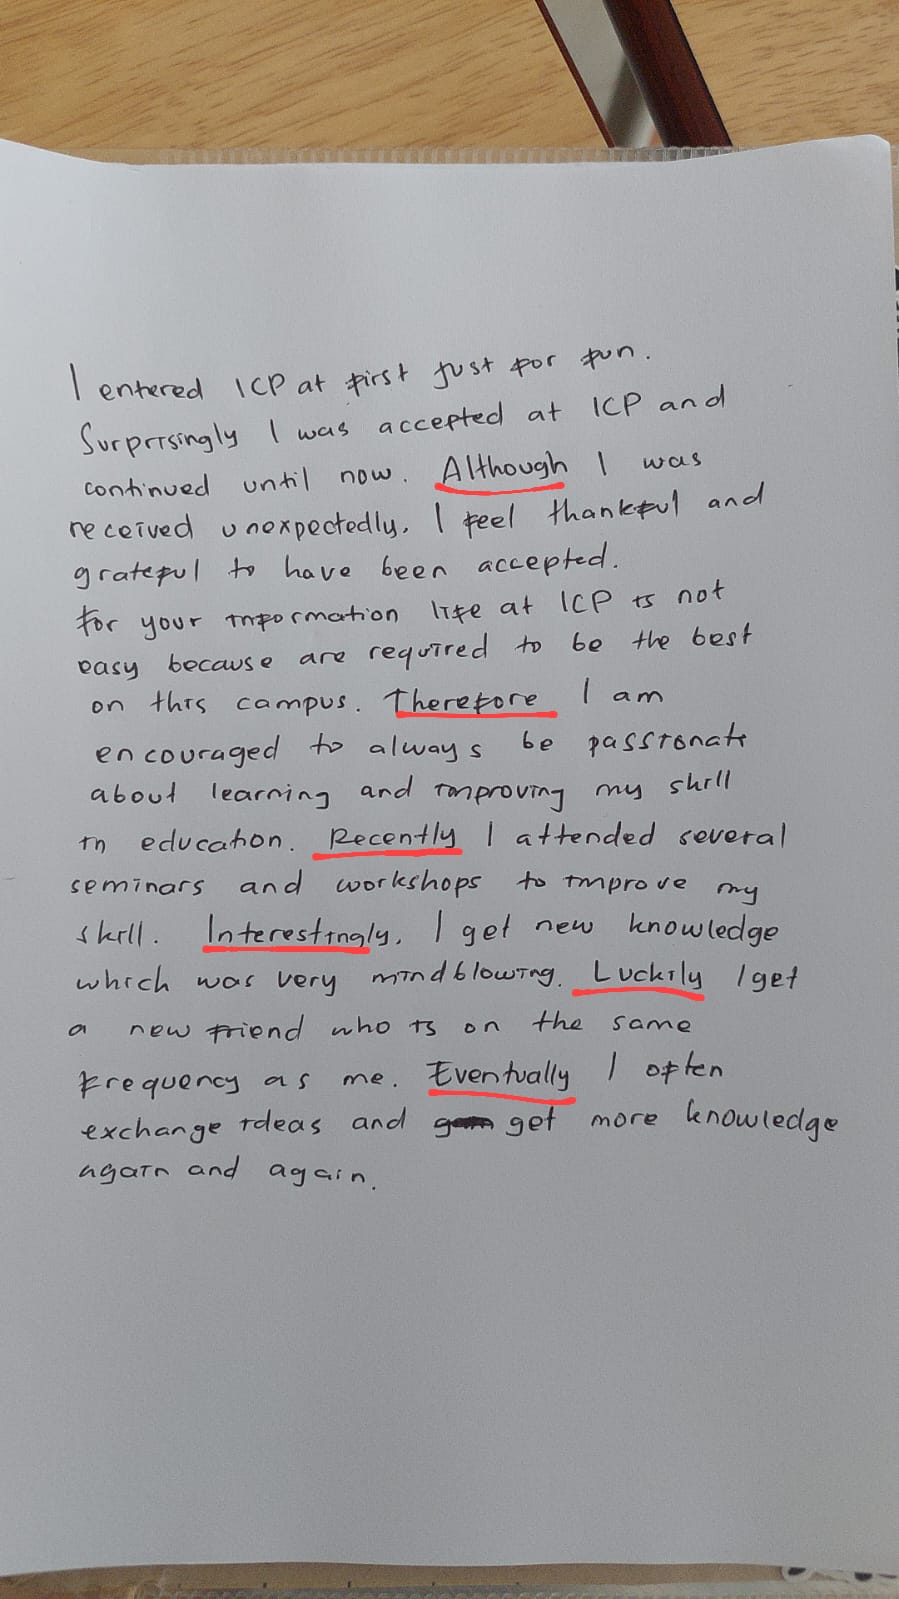 I entered ICP at first just for fun.
Surprisingly I was accepted at ICP and
continued until now. Although I was
received unexpectedly, I feel thankful and
grateful to have been accepted.
For your information life at ICP is not
easy because are required to be the best
on this campus. Therefore I am
encouraged to always be passionate
about learning and improving my skill
in education. Recently I attended several
seminars and workshops to improve my
skill. Interestingly, I get new knowledge
which was very mindblowing. Luckily I get
a new friend who is on the same
frequency as me. Eventually I often
exchange ideas and get more knowledge
again and again.